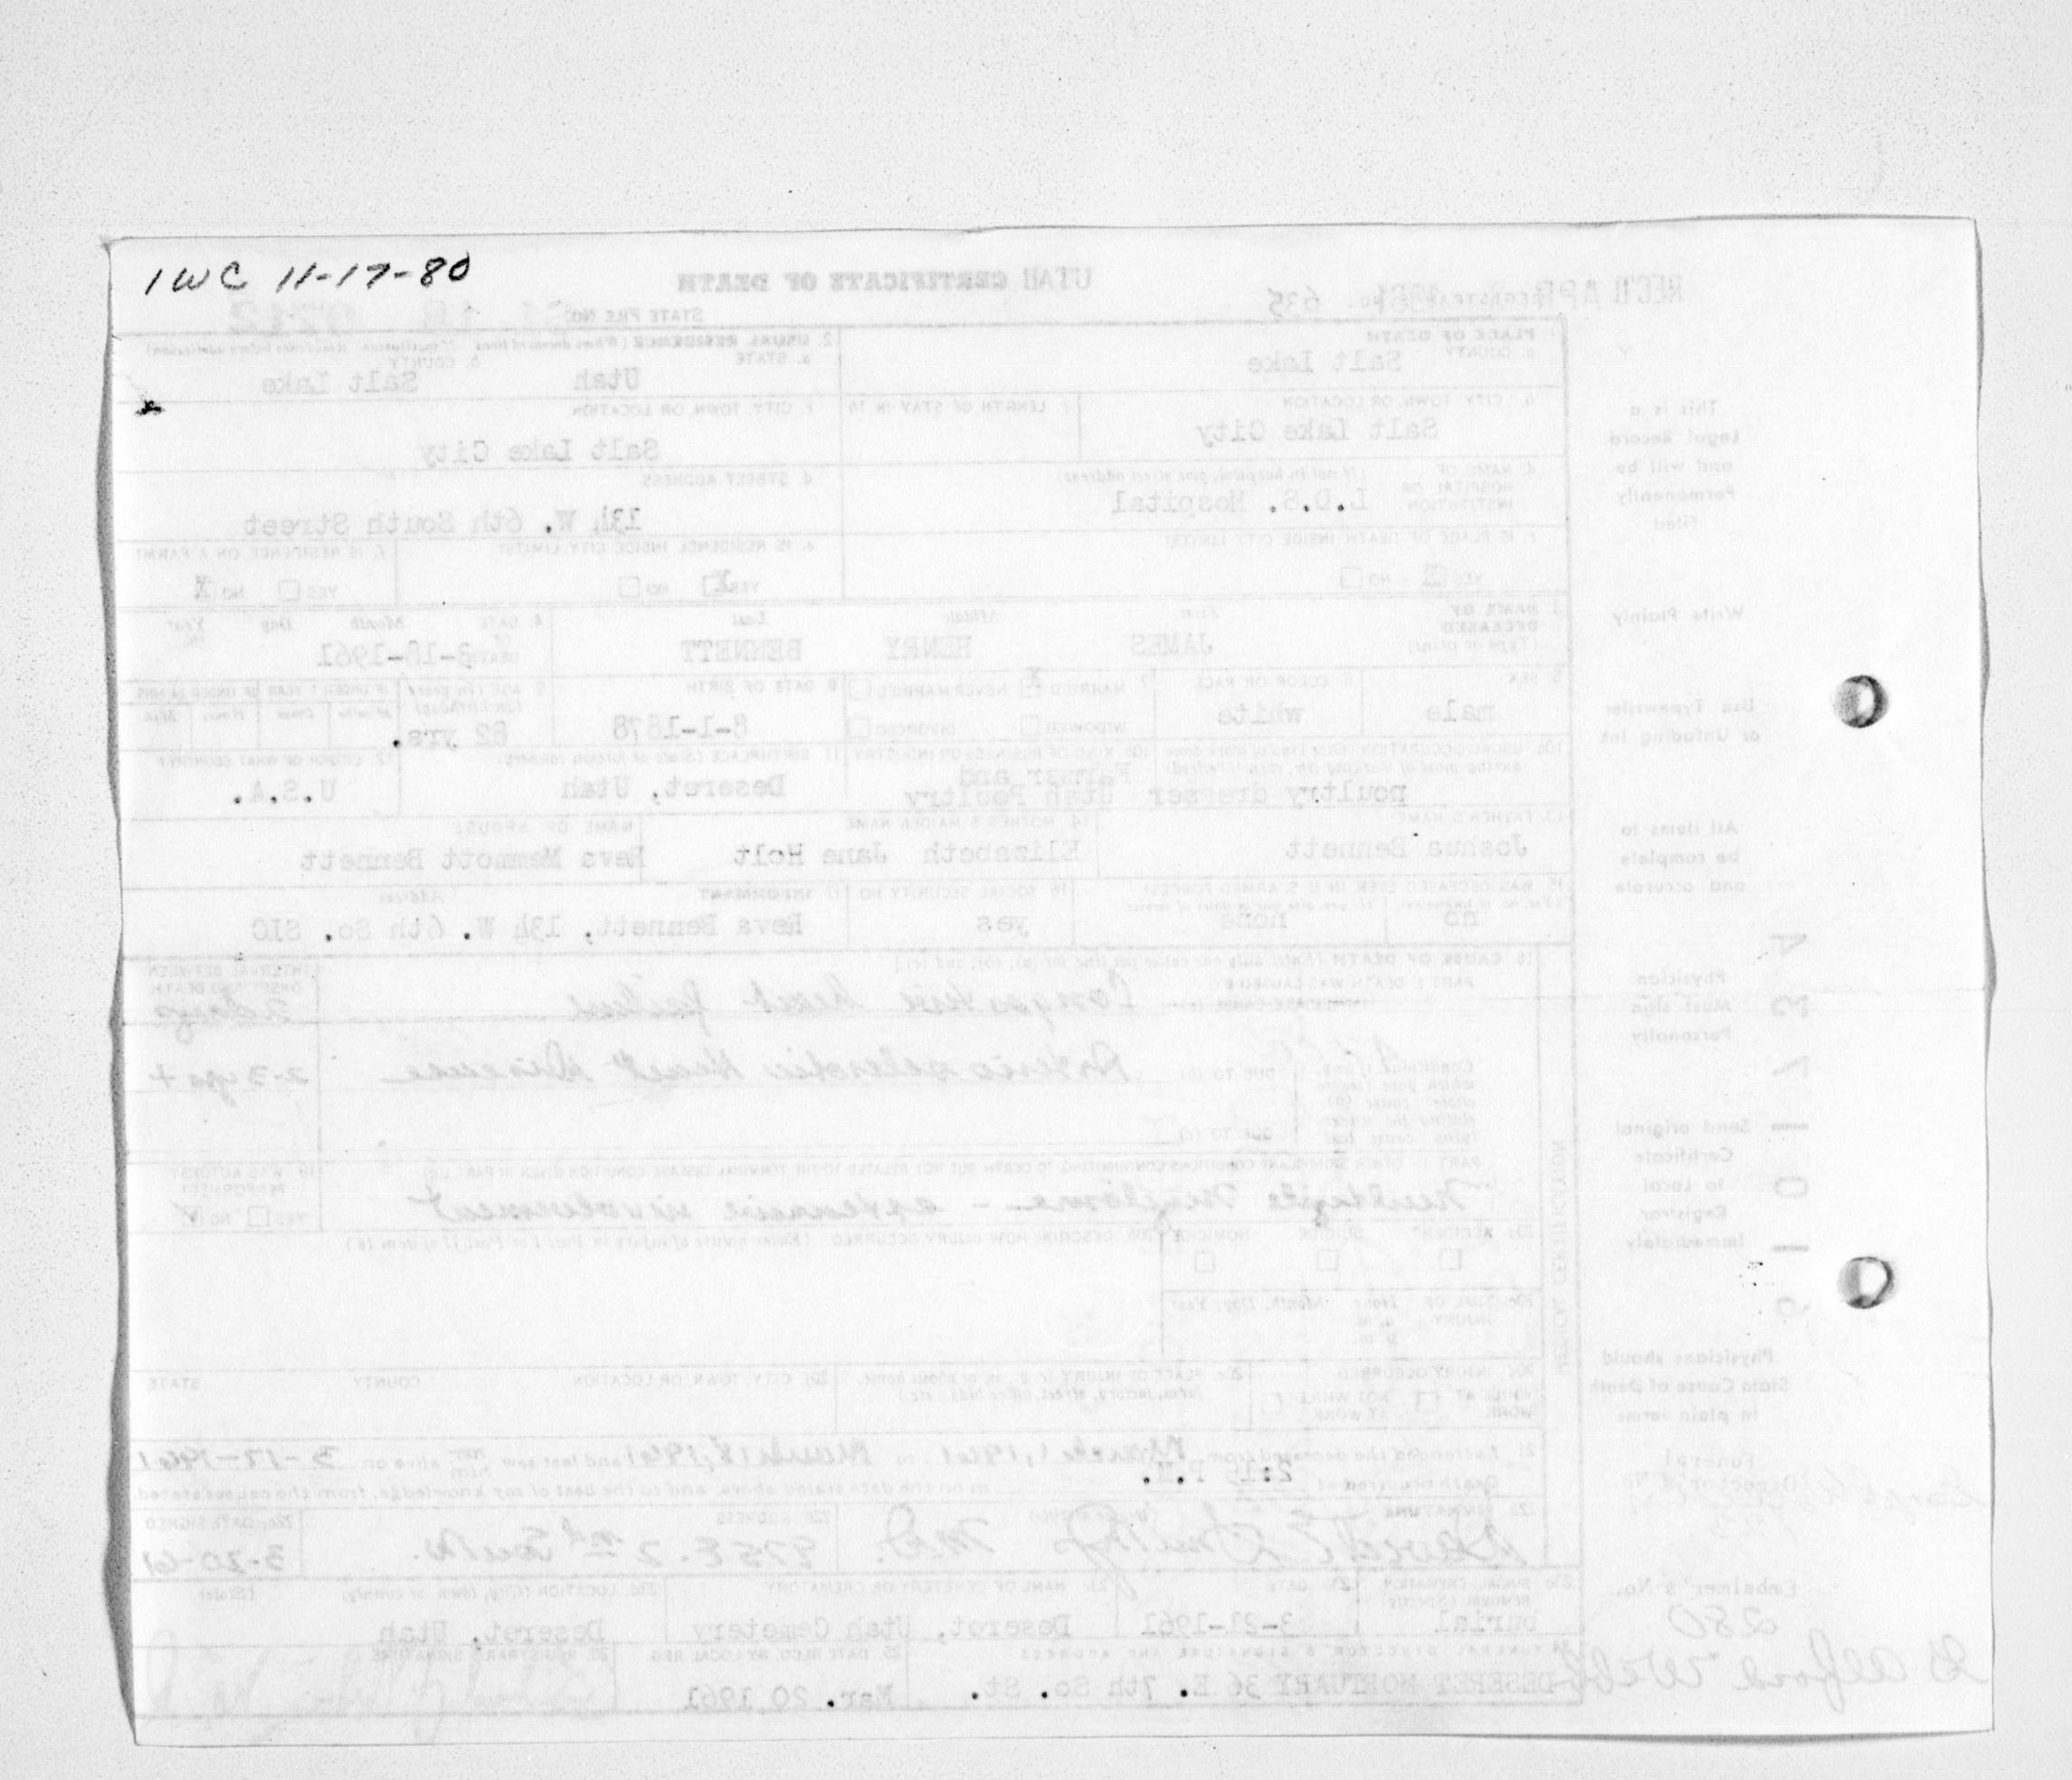 1WC 11-17-80
UTAH CERTIFICATE OF DEATH
STATE FILE NO.
REC'D APR
REGISTRAR'S NO. 635
1. PLACE OF DEATH
a. COUNTY Salt Lake
2. USUAL RESIDENCE (Where deceased lived. If institution: Residence before admission)
a. STATE Utah b. COUNTY Salt Lake
b. CITY, TOWN, OR LOCATION Salt Lake City
c. LENGTH OF STAY IN 1b
c. CITY, TOWN, OR LOCATION Salt Lake City
d. NAME OF HOSPITAL OR INSTITUTION (If not in hospital, give street address) L.D.S. Hospital
d. STREET ADDRESS 134 W. 6th South Street
e. IS PLACE OF DEATH INSIDE CITY LIMITS? YES NO
e. IS RESIDENCE INSIDE CITY LIMITS? YES X NO
f. IS RESIDENCE ON A FARM? YES NO X
3. NAME OF DECEASED (Type or print) First JAMES Middle HENRY Last BENNETT
4. DATE OF DEATH Month Day Year 3-18-1961
5. SEX male
6. COLOR OR RACE white
7. MARRIED X NEVER MARRIED WIDOWED DIVORCED
8. DATE OF BIRTH 8-1-1878
9. AGE (In years last birthday) 82 yrs.
IF UNDER 1 YEAR IF UNDER 24 HRS.
10a. USUAL OCCUPATION (Give kind of work done during most of working life, even if retired) poultry dresser
10b. KIND OF BUSINESS OR INDUSTRY Farmer and Utah Poultry
11. BIRTHPLACE (State or foreign country) Deseret, Utah
12. CITIZEN OF WHAT COUNTRY? U.S.A.
13. FATHER'S NAME Joshua Bennett
14. MOTHER'S MAIDEN NAME Elizabeth Jane Holt
NAME OF SPOUSE Reva Memmott Bennett
15. WAS DECEASED EVER IN U.S. ARMED FORCES? no none
16. SOCIAL SECURITY NO. yes
17. INFORMANT Address Reva Bennett, 134 W. 6th So. SLC
18. CAUSE OF DEATH [Enter only one cause per line for (a), (b), and (c).]
INTERVAL BETWEEN ONSET AND DEATH
PART I. DEATH WAS CAUSED BY:
IMMEDIATE CAUSE (a) Congestive heart failure 2 days
Conditions, if any, which gave rise to above cause (a), stating the underlying cause last.
DUE TO (b) Arteriosclerotic Heart Disease 2-3 yrs +
DUE TO (c)
PART II. OTHER SIGNIFICANT CONDITIONS CONTRIBUTING TO DEATH BUT NOT RELATED TO THE TERMINAL DISEASE CONDITION GIVEN IN PART I(a)
Multiple Myeloma - extensive involvement
19. WAS AUTOPSY PERFORMED? YES NO ✓
20a. ACCIDENT SUICIDE HOMICIDE
20b. DESCRIBE HOW INJURY OCCURRED (Enter nature of injury in Part I or Part II of item 18.)
20c. TIME OF INJURY Hour a.m. p.m. Month, Day, Year
20d. INJURY OCCURRED WHILE AT WORK NOT WHILE AT WORK
20e. PLACE OF INJURY (e.g., in or about home, farm, factory, street, office bldg., etc.)
20f. CITY, TOWN, OR LOCATION COUNTY STATE
21. I attended the deceased from March 1, 1961 to March 18, 1961 and last saw him alive on 3-17-1961
Death occurred at 2:15 P.M. on the date stated above, and to the best of my knowledge, from the causes stated.
22a. SIGNATURE (Degree or title) M.D.
22b. ADDRESS 975 E. 2nd South
22c. DATE SIGNED 3-20-61
23a. BURIAL, CREMATION, REMOVAL (Specify) burial
23b. DATE 3-21-1961
23c. NAME OF CEMETERY OR CREMATORY Deseret, Utah Cemetery
23d. LOCATION (City, town, or county) (State) Deseret, Utah
24. FUNERAL DIRECTOR'S SIGNATURE AND ADDRESS
DESERET MORTUARY 36 E. 7th So. St.
25. DATE RECD. BY LOCAL REG. Mar. 20 1961
26. REGISTRAR'S SIGNATURE
MEDICAL CERTIFICATION
This is a Legal Record and will be Permanently Filed
Write Plainly
Use Typewriter or Unfading Ink
All items to be complete and accurate
Physician Must sign Personally
Send original Certificate to Local Registrar Immediately
Physicians should State Cause of Death in plain terms
Funeral Director's No.
Embalmer's No. 280
Alfone Webb